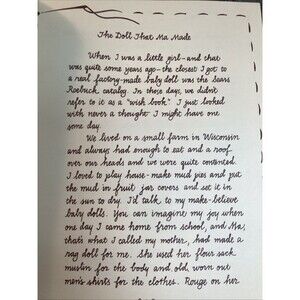 The Doll That Ma Made
When I was a little girl - and that
was quite some years ago - the closest I got to
a real factory-made baby doll was the Sears
Roebuck catalog. In those days, we didn't
refer to it as a "wish book". I just looked
with never a thought I might have one
some day.
We lived on a small farm in Wisconsin
and always had enough to eat and a roof
over our heads and we were quite contented.
I loved to play house - make mud pies and put
the mud in fruit jar covers and set it in
the sun to dry. I'd talk to my make-believe
baby dolls. You can imagine my joy when
one day I came home from school, and Ma,
that's what I called my mother, had made a
rag doll for me. She used her flour sack
muslin for the body and old, worn out
men's shirts for the clothes. Rouge on her